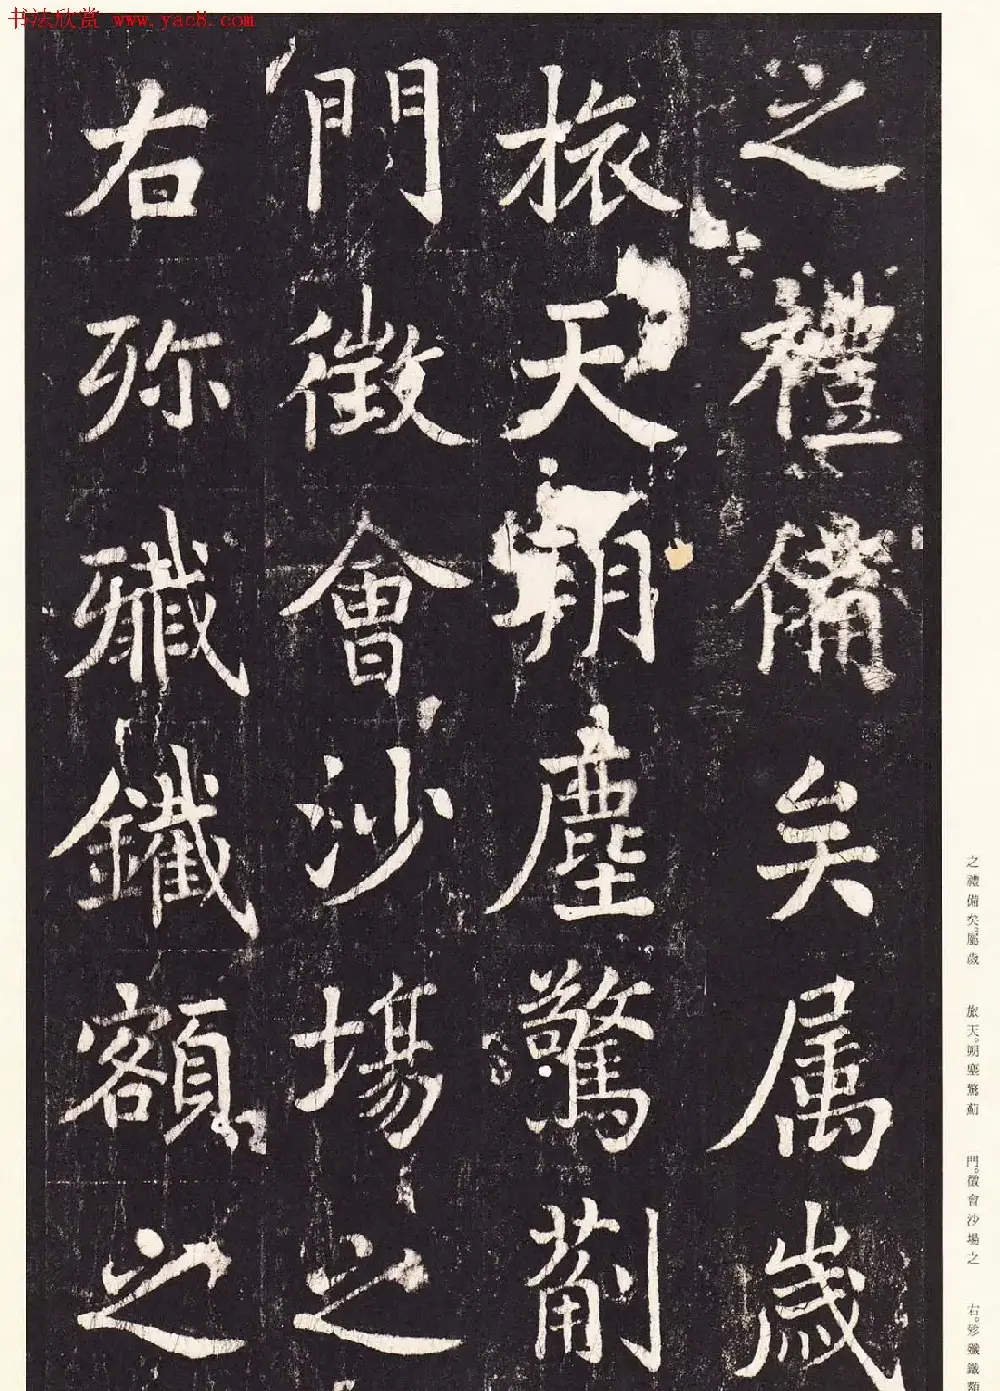 书法欣赏 www.yac8.com
之禮備矣属歲
旅天朔塵驚薊
門徵會沙場之
右殄殲鐵額之
之禮備矣。屬歲
旅天。朔塵驚薊
門。徵會沙場之
右。殄殲鐵額